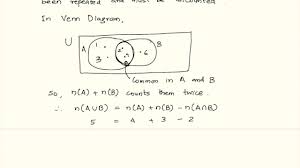 been repeated and must be discounted
In Venn Diagram,
U
A
B
1.
3.
2.
4.
.6
Common in A and B
So, n(A) + n(B) counts them twice.
∴ n(A∪B) = n(A) + n(B) - n(A∩B)
5 = 4 + 3 - 2